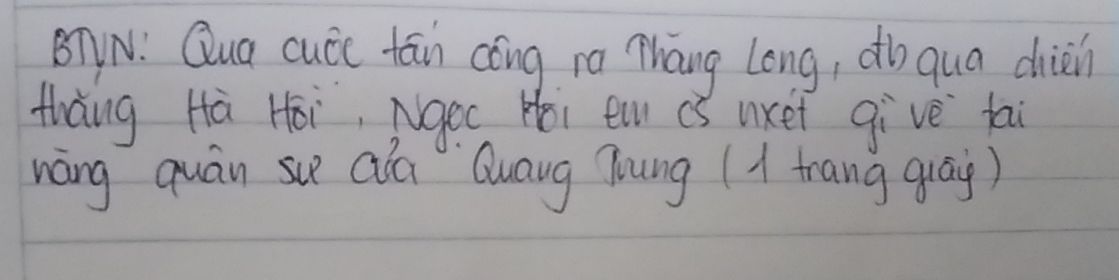 BTVN: Qua cuộc tấn công ra Thăng Long, đb qua chiến
thắng Hà Hồi, Ngọc Hồi em có nxét gì về tài
năng quân sự của Quang Trung (1 trang giấy)